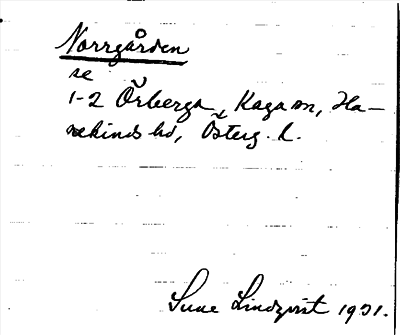 Norrgården
se
1-2 Örberga, Kaga sn, Ha-
nekinds hd, Österg. l.
Sune Lindqvist 1931.